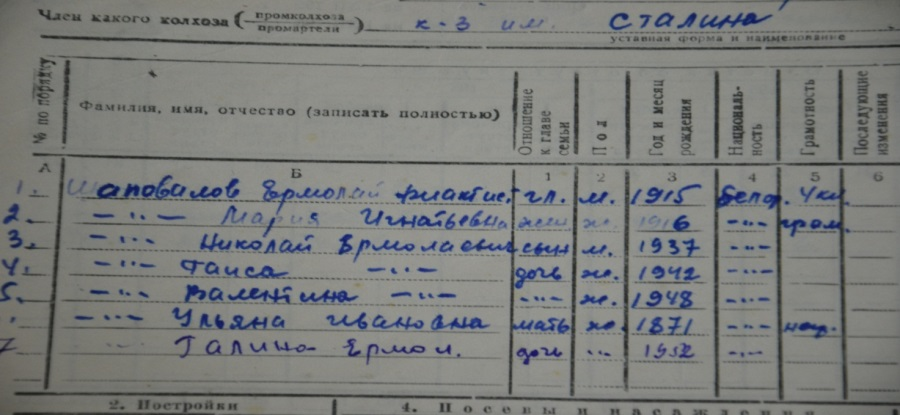 Член какого колхоза (промколхоза промартели) к-з им. Сталина
уставная форма и наименование
№ по порядку Фамилия, имя, отчество (записать полностью) Отношение к главе семьи Пол Год и месяц рождения Националь-ность Грамотность Последующие изменения
А Б 1 2 3 4 5 6
1. Шаповалов Ермолай гл. м. 1915 Белор. 4 кл.
2. — " — Мария Игнатьевна жен. ж. 1916 — " — грам.
3. — " — Николай Ермолаевич сын м. 1937 — " —
4. — " — Таиса — " — дочь ж. 1942 — " —
5. — " — Валентина — " — — " — ж. 1948 — " —
— " — Ульяна Ивановна мать ж. 1871 — " — негр.
7 " Галина Ермол. дочь " 1952 — " —
2. Постройки 4. Посевы и насаждения